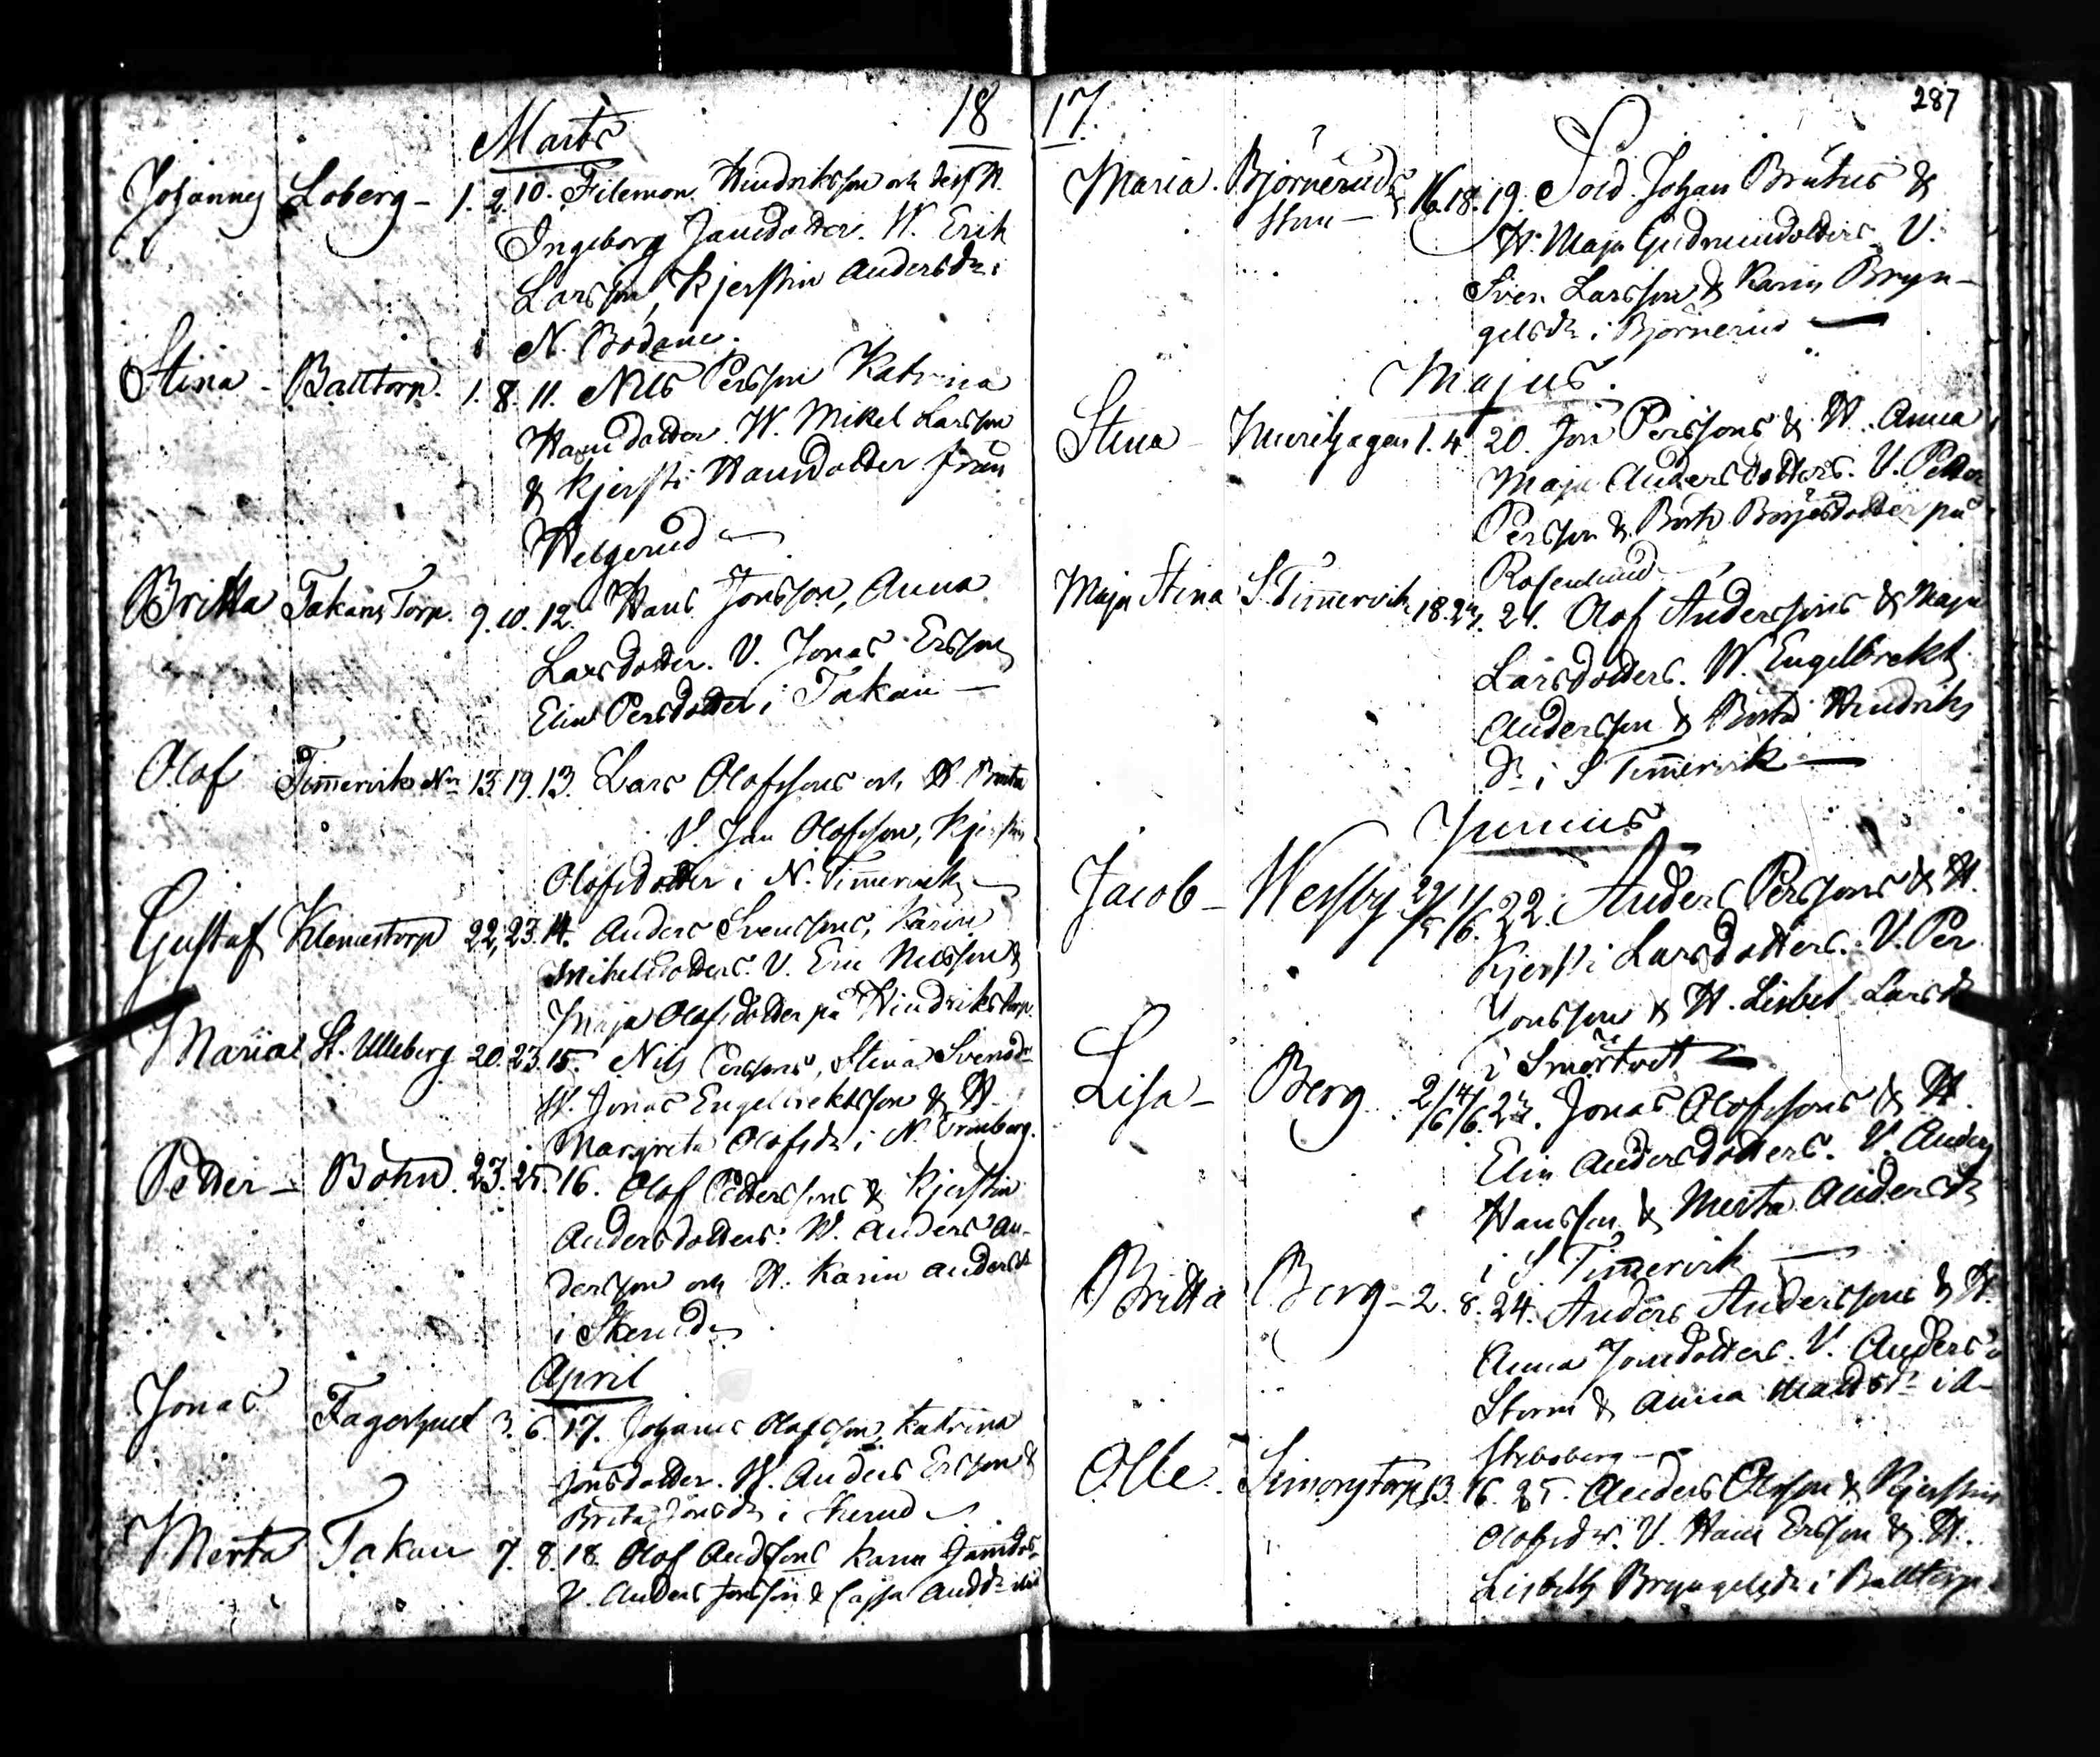 Marts 18
Johannes Loberg - 1. 2. 10. Filemon Hindriksson och dess H.
Ingeborg Jansdotter. W. Erik
Larsson, Kjerstin Andersdr i
N. Bodane.
Stina - Balltorp. 1. 8. 11. Nils Persson Katrina
Hansdotter. W. Mikel Larsson
& Kjersti Hansdotter från
Helgerud
Britta Takans Torp. 9. 10. 12. Hans Jonsson, Anna
Larsdotter. V. Jonas Ersson
Elin Persdotter i Takan -
Olof Tim̅ervik Nr 13. 19. 13. Lars Olofssons och H. Brita
V. Jan Olofsson, Kjerstin
Olofsdotter i N. Tim̅ervik
Gustaf Klemestorp 22, 23. 14. Anders Svenssons, Karin
Mikelsdotters. V. Eric Nilsson &
Maja Olofsdotter på Hindrikstorp.
Maria St. Ulleberg 20. 23. 15. Nils Perssons, Stina Svensdr
W. Jonas Engelbrektsson & H.
Margreta Olofsdr i N.
Petter - Bohn. 23. 25. 16. Olof Petterssons & Kjerstin
Andersdotters. W. Anders An-
dersson och H. Karin Andersdr
i Skerud
April
Jonas Fagerhult 3. 6. 17. Johannes Olofsson, Katrina
Jonsdotter. W. Anders Ersson &
Brita Jonsdr i Skerud
Merta Takan 7. 8. 18. Olof Andssons Karin Jansdotr
V. Anders Jonsson & Cajsa Anddr ibid
17. 287
Maria. Björneruds 16. 18. 19. Sold. Johan Brutus &
H. Maja Gudmundsdotters V.
Sven Larsson & Karin Bryn-
gelsdr i Björnerud
Majus.
Stina - 1. 4. 20. Jon Perssons & H. Anna
Maja Andersdotters. V. Petter
Persson & Brita Börjesdotter på
Rosenlund
Maja Stina S. Tim̅ervik 18. 21. Olof Anderssons & Maja
Larsdotters. W. Engelbrekt
Andersson & Brita Hindriks
dr i S Tim̅ervik
Junius
Jacob - Wessby 29/5 1/6. 22. Anders Perssons & H.
Kjersti Larsdotters. V. Per
Jonsson & H. Lisbet Larsdr
i Smörtvet
Lisa - Berg 2/6 4/6. 23. Jonas Olofssons & H.
Elin Andersdotters. V. Anders
Hansson & Merta Andersdr
i S Tim̅ervik
Britta Berg - 2. 8. 24. Anders Anderssons & H.
Anna Jonsdotters. V. Anders
Storm & Anna i A-
Olle. Simonstorp 13. 16. 25. Anders Olsson & Kjerstin
Olofsdr. V. Hans Ersson & H.
Lisbeth Bryngelsdr i Balltorp.